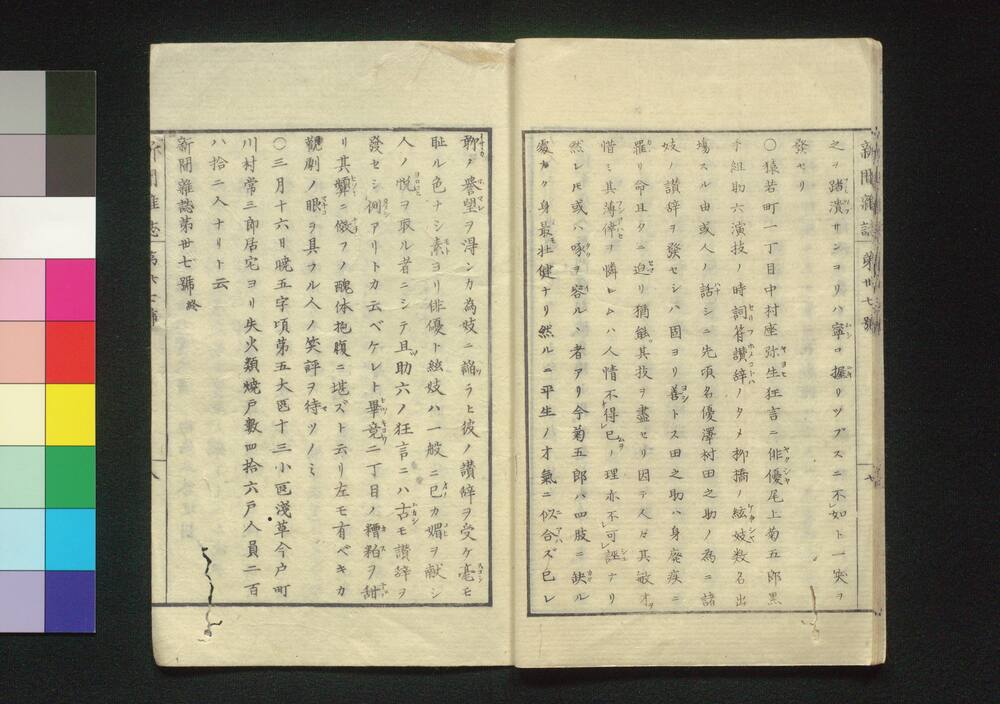 新聞雜誌 第卅七號 七
之ヲ踏潰サンヨリハ寧ロ握リツブスニ不如ト一笑ヲ
發セリ
〇猿若町一丁目中村座弥生狂言ニ俳優尾上菊五郎黒
手組助六演技ノ時詞符讃辞ノタメ柳橋ノ絃妓数名出
場スル由或人ノ話シニ先頃名優澤村田之助ノ為ニ諸
妓ノ讃辞ヲ發セシハ固ヨリ善トス田之助ハ身癈疾ニ
罹リ命且タニ迫リ猶能其技ヲ盡セリ因テ人々其敏才ヲ
惜ミ其薄倖ヲ憐レムハ人情不得已ノ理亦不可誣ナリ
然レ𪜈或ハ啄ヲ容ルヽ者アリ今菊五郎ハ四肢ニ缺ル
處ナク身最壮健ナリ然ルニ平生ノ才氣ニ似合ズ已レ
聊ノ譽望ヲ得ンカ為妓ニ諂ラヒ彼ノ讃辞ヲ受ケ毫モ
耻ル色ナシ素ヨリ俳優ト絃妓ハ一般ニ已カ媚ヲ献シ
人ノ悦ヲ取ル者ニシテ且助六ノ狂言ニハ古モ讃辞ヲ
發セシ例アリトカ云ベケレト畢竟二丁目ノ糟粕ヲ甜
リ其顰ニ傚フノ醜体抱腹ニ堪ズト云リ左モ有ベキカ
觀劇ノ眼ヲ具フル人ノ笑評ヲ待ツノミ
〇三月十六日曉五字頃第五大區十三小區淺草今戸町
川村常三郎居宅ヨリ失火類焼戸數四拾六戸人員二百
八拾二人ナリト云
新聞雜誌第卅七號終